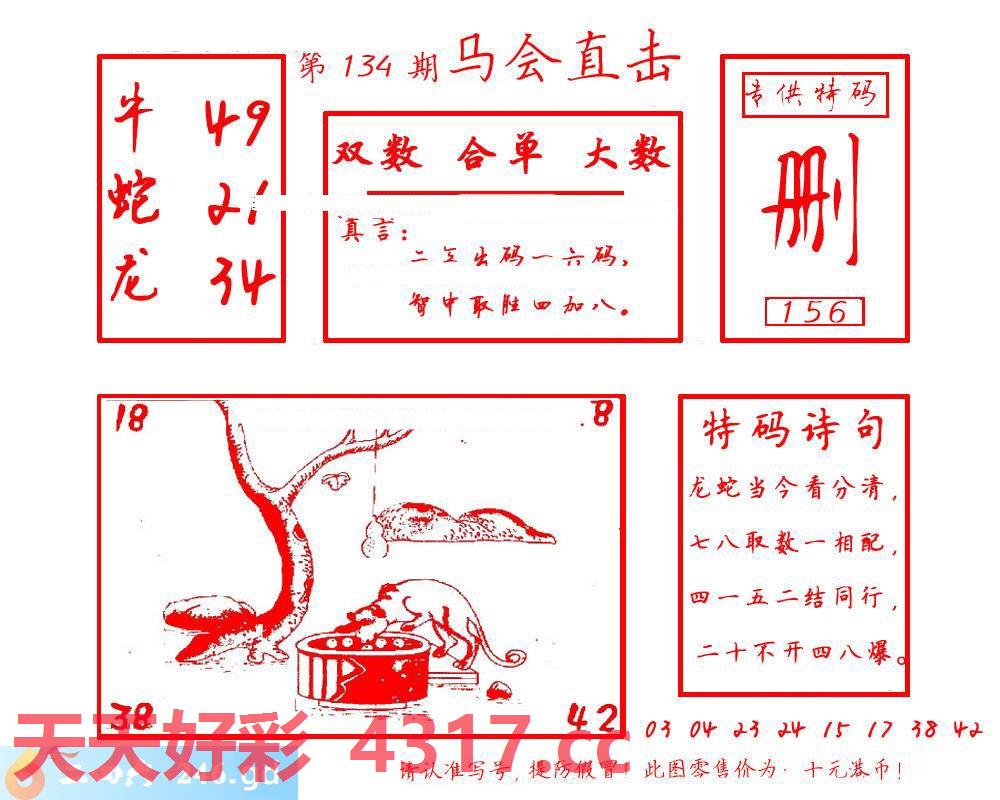 第 134 期 马会直击
牛 49
蛇 21
龙 34
双数 合单 大数
真言：
二五出码一六码，
智中取胜四加八。
专供特码
删
156
18
.8
38
42
特码诗句
龙蛇当今看分清，
七八取数一相配，
四一五二结同行，
二十不开四八爆。
03 04 23 24 15 17 38 42
天天好彩 4317.cc
246.gd
请认准写号，提防假冒！此图零售价为·十元港币！